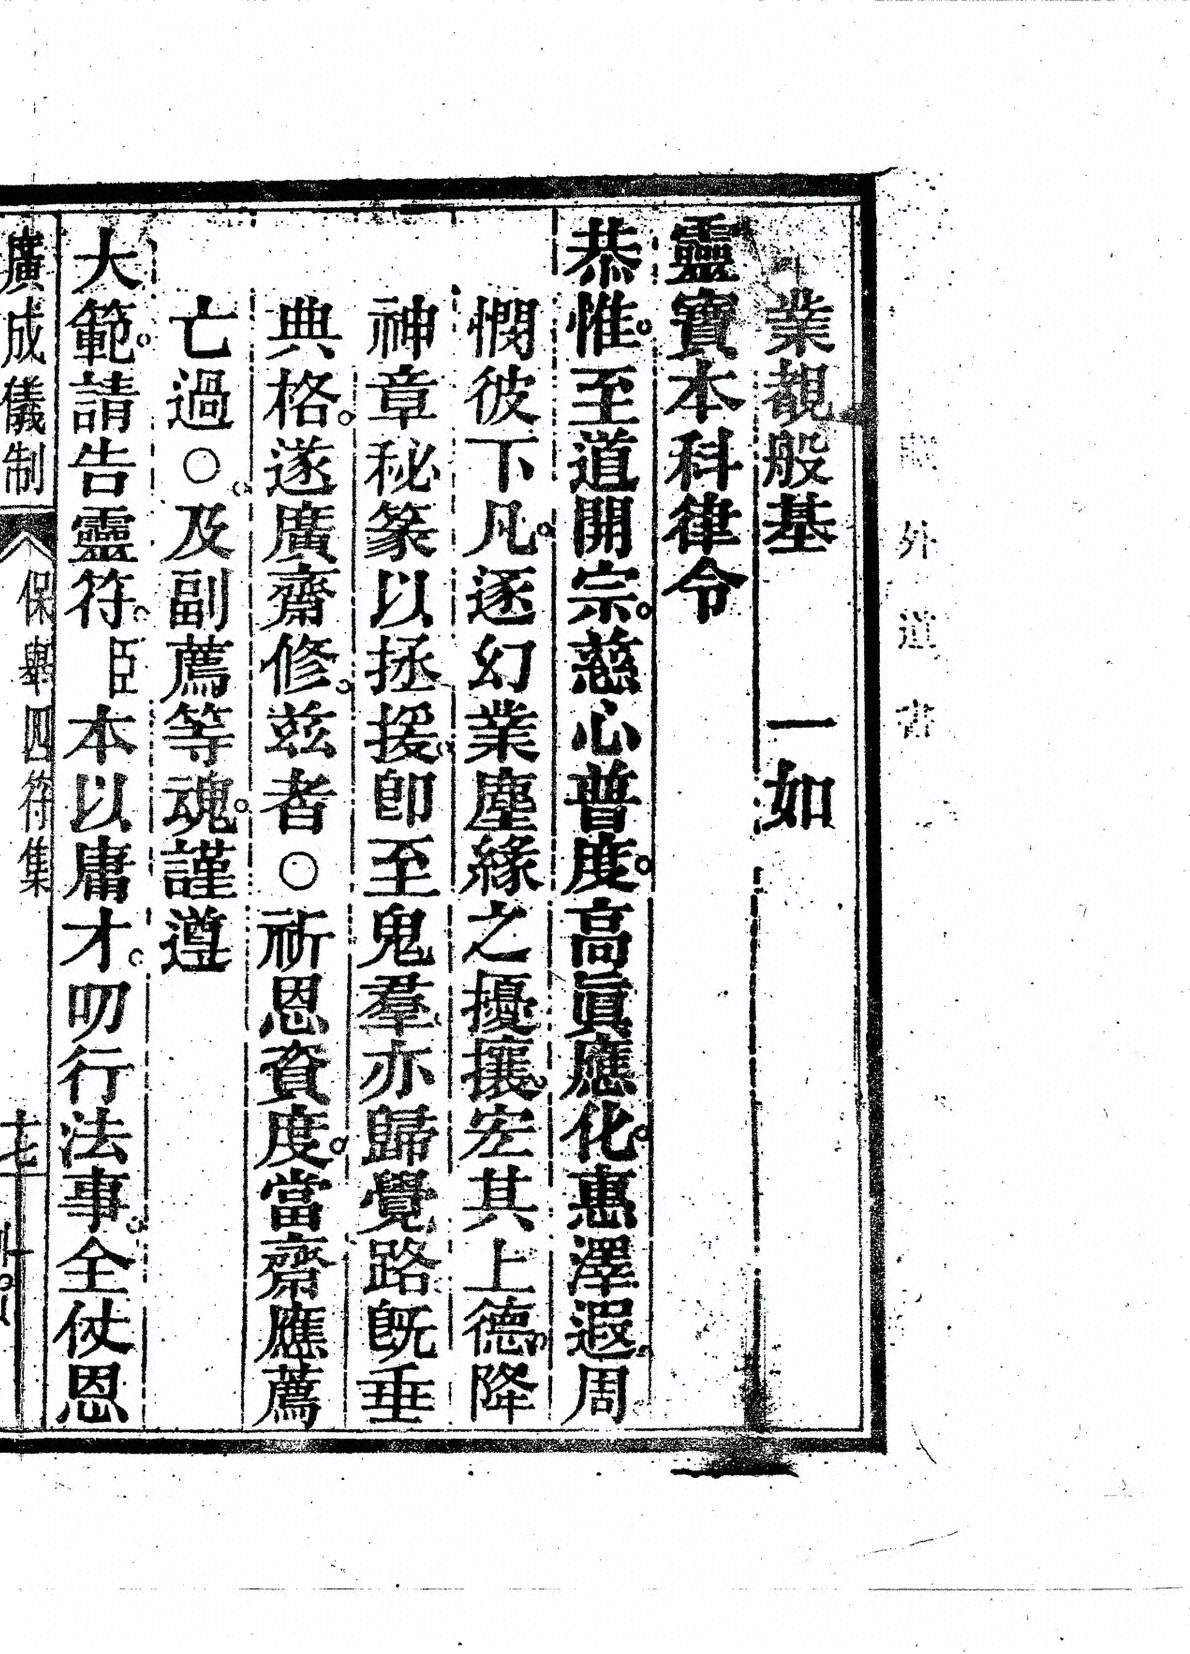 藏外道書
業覩般基　一如
靈寶本科律令
恭惟。至道開宗。慈心普度。高眞應化。惠澤遐周
憫彼下凡。逐幻業塵緣之擾攘。宏其上德。降
神章秘篆以拯援。卽至鬼羣亦歸覺路旣垂
典格。遂廣齋修。玆者○祈恩資度。當齋應薦
亡過○及副薦等魂。謹遵
大範。請告靈符。臣本以庸才。叨行法事。全仗恩
廣成儀制　保舉四符集